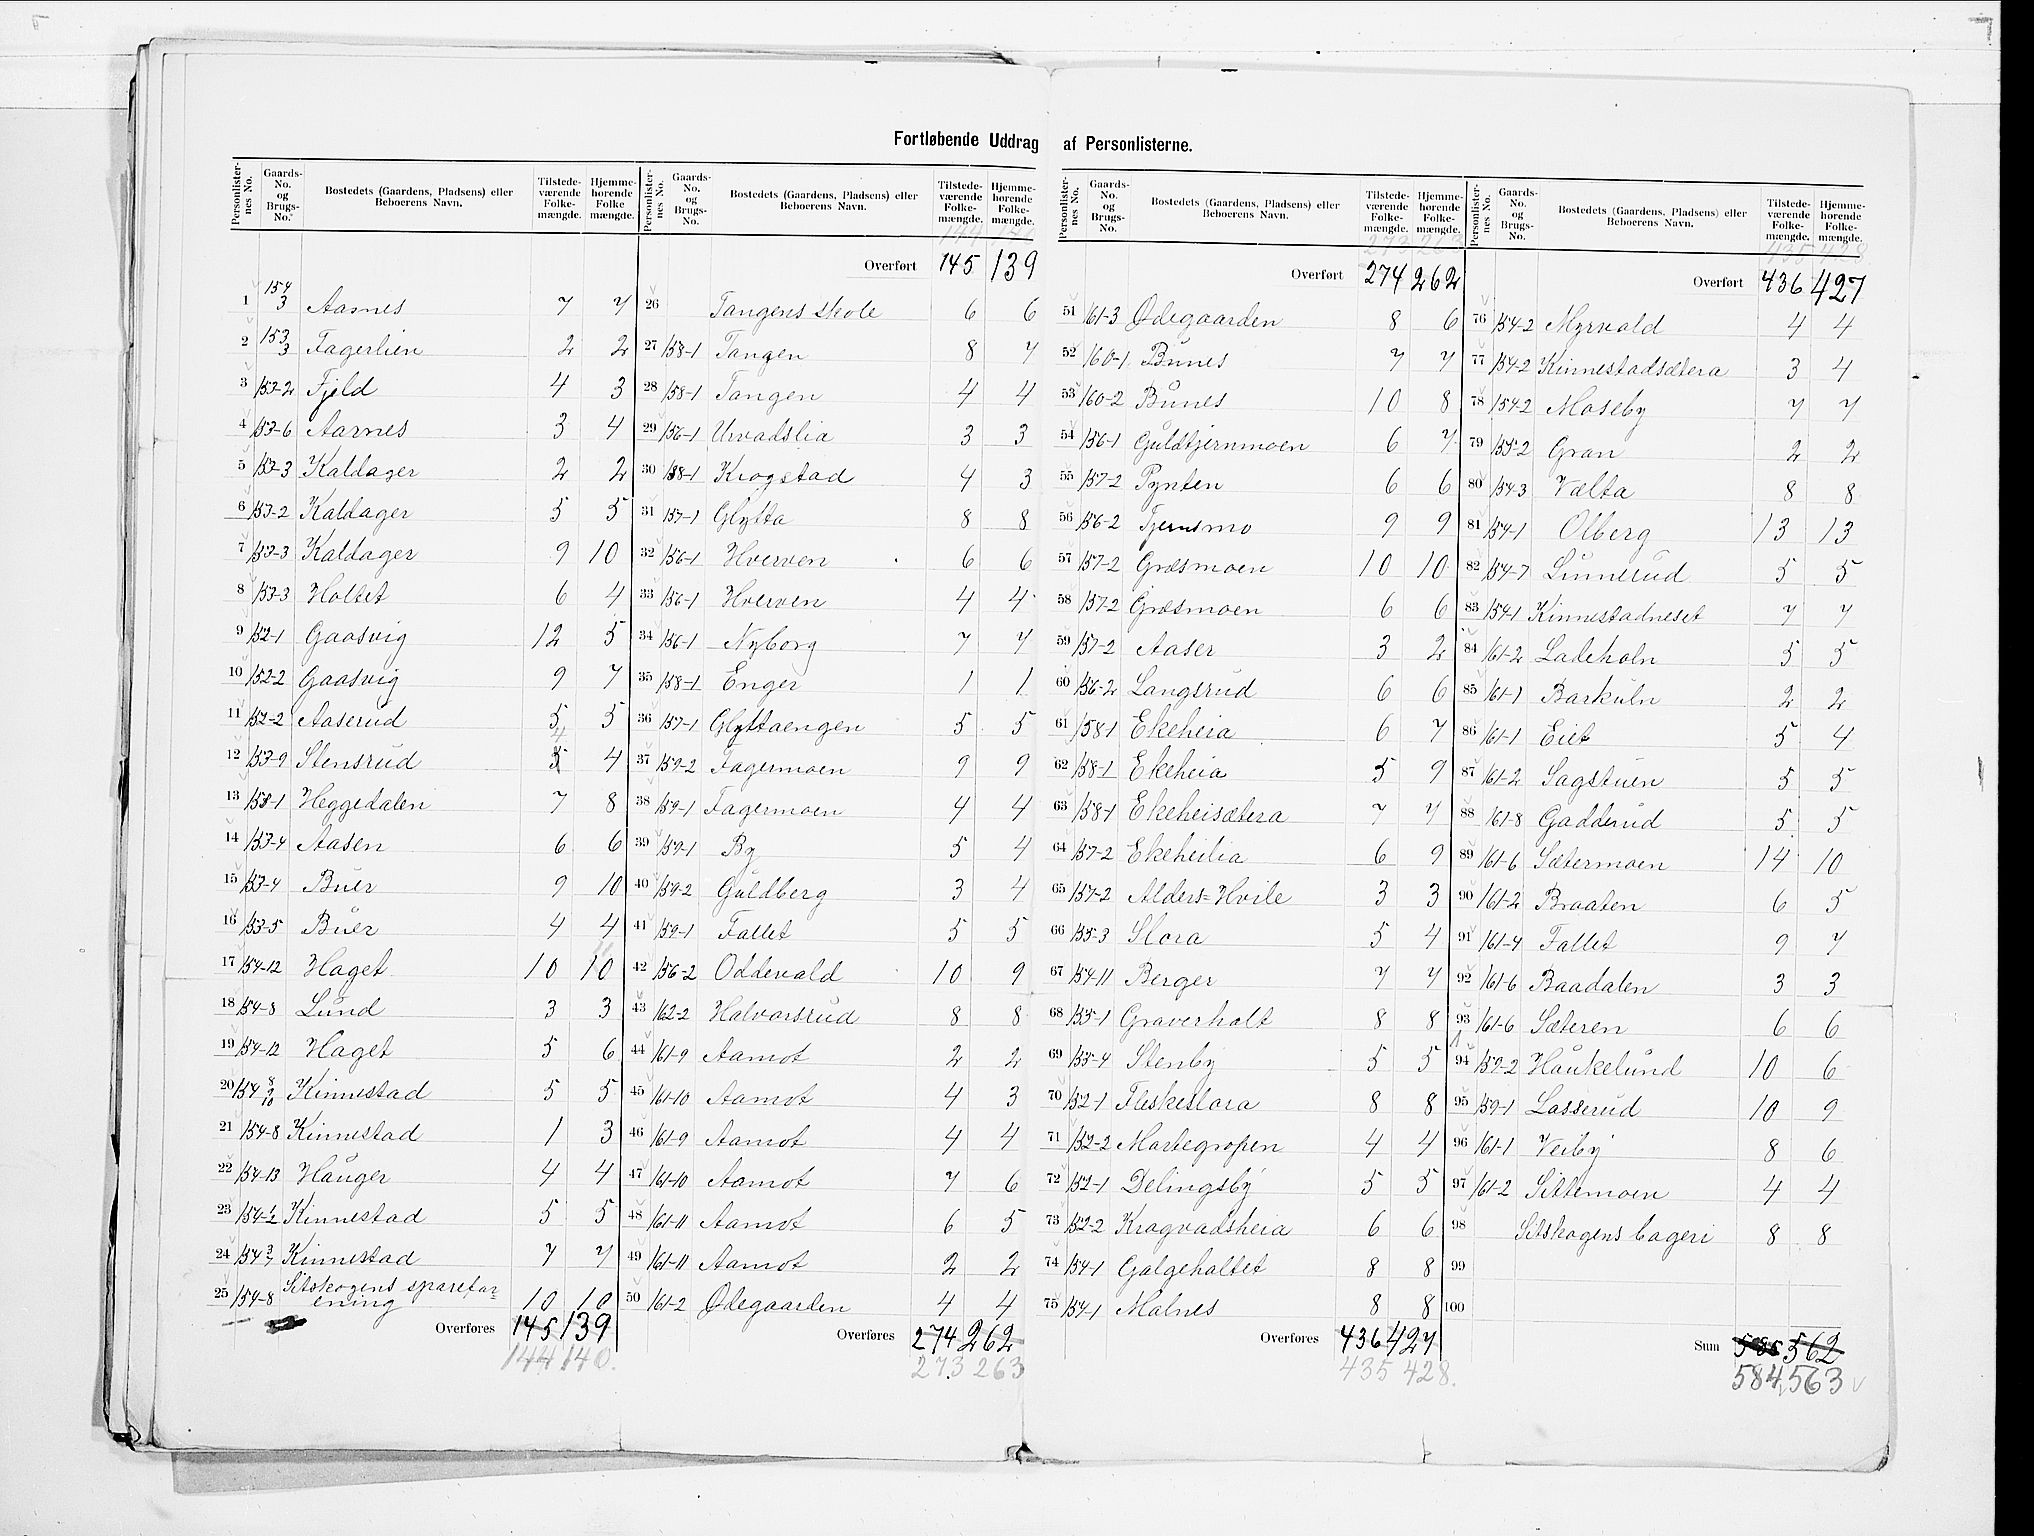 Fortløbende Uddrag af Personlisterne.
Personlisternes No. | Gaards-No. og Brugs-No. | Bostedets (Gaardens, Pladsens) eller Beboerens Navn. | Tilstedeværende Folkemængde. | Hjemmehørende Folkemængde.
1 154 3 Aarnes 7 7
2 153 3 Fagerlien 2 2
3 153-2 Fjeld 4 3
4 153-6 Aarnes 3 4
5 153-3 Kaldager 2 2
6 153-2 Kaldager 5 5
7 153-3 Kaldager 9 10
8 153-3 Holtet 6 4
9 152-1 Gaasvig 12 5
10 152-2 Gaasvig 9 7
11 152-2 Aaserud 5 5
12 153-9 Stensrud 4 4
13 158-1 Heggedalen 7 8
14 153-4 Aasen 6 6
15 153-4 Buer 9 10
16 153-5 Buer 4 4
17 154-12 Haget 10 10
18 154-8 Lund 3 3
19 154-12 Haget 5 6
20 154 8 9 10 Kinnestad 5 5
21 154-8 Kinnestad 1 3
22 154-13 Hauger 4 4
23 154-1/2 Kinnestad 5 5
24 154 3/7 Kinnestad 7 7
25 154-8 Sitskogens sparefor-
ening 10 10
Overføres 145 139
144 140.
Personlisternes No. | Gaards-No. og Brugs-No. | Bostedets (Gaardens, Pladsens) eller Beboerens Navn. | Tilstedeværende Folkemængde. | Hjemmehørende Folkemængde.
Overført 145 139
26 Tangens skole 6 6
27 158-1 Tangen 8 7
28 158-1 Tangen 4 4
29 156-1 Urvadslia 3 3
30 158-1 Krogstad 4 3
31 157-1 Glytta 8 8
32 156-1 Hverven 6 6
33 156-1 Hverven 4 4
34 156-1 Nyborg 7 7
35 158-1 Enger 1 1
36 157-1 Glyttaengen 5 5
37 159-2 Fagermoen 9 9
38 159-1 Fagermoen 4 4
39 159-1 By 5 4
40 159-2 Guldberg 3 4
41 159-1 Fallet 5 5
42 156-2 Oddevald 10 9
43 162-2 Halvorsrud 8 8
44 161-9 Aamot 2 2
45 161-10 Aamot 4 3
46 161-9 Aamot 4 4
47 161-10 Aamot 7 6
48 161-11 Aamot 6 5
49 161-11 Aamot 2 2
50 161-2 Ødegaarden 4 4
Overføres 274 262
273 263
Personlisternes No. | Gaards-No. og Brugs-No. | Bostedets (Gaardens, Pladsens) eller Beboerens Navn. | Tilstedeværende Folkemængde. | Hjemmehørende Folkemængde.
273 263
Overført 274 262
51 161-3 Ødegaarden 8 6
52 160-1 Bunes 7 7
53 160-2 Bunes 10 8
54 156-1 Guldtjernmoen 6 7
55 157-2 Pynten 6 6
56 156-2 Tjernsmo 9 9
57 157-2 Græsmoen 10 10
58 157-2 Græsmoen 6 6
59 157-2 Aaser 3 2
60 156-2 Langsrud 6 6
61 158-1 Ekeheia 6 7
62 158-1 Ekeheia 5 9
63 158-1 Ekeheisætera 7 7
64 157-2 Ekeheilia 6 9
65 157-2 Alders=Hvile 3 3
66 155-3 Slora 5 4
67 154-11 Berger 7 7
68 155-1 Graverholt 8 8
69 155-4 Stenby 5 5
70 152-1 Fleskeslora 8 8
71 152-2 Martegropen 4 4
72 152-1 Delingsby 5 5
73 152-2 Kragvadsheia 6 6
74 154-1 Galgeholtet 8 8
75 154-1 Malnes 8 8
Overføres 436 427
435 428.
Personlisternes No. | Gaards-No. og Brugs-No. | Bostedets (Gaardens, Pladsens) eller Beboerens Navn. | Tilstedeværende Folkemængde. | Hjemmehørende Folkemængde.
435 428
Overført 436 427
76 154-2 Myrvold 4 4
77 154-2 Kinnestadsætera 3 4
78 154-2 Moseby 7 7
79 155-2 Gran 2 2
80 154-3 Vælta 8 8
81 154-1 Olberg 13 13
82 154-7 Linnerud 5 5
83 154-1 Kinnestadneset 7 7
84 161-2 Ladeholn 5 5
85 161-1 Barkuln 2 2
86 161-1 Eiet 5 4
87 161-2 Sagstuen 5 5
88 161-8 Gadderud 5 5
89 161-6 Sætermoen 14 10
90 161-2 Braaten 6 5
91 161-4 Fallet 9 7
92 161-6 Baadalen 3 3
93 161-6 Sæteren 6 6
94 159-2 Haukelund 10 6
95 159-1 Lasserud 10 9
96 161-1 Veiby 8 6
97 161-2 Sittemoen 4 4
98 Sitskogens bageri 8 8
99
100
Sum 585 562
584 563